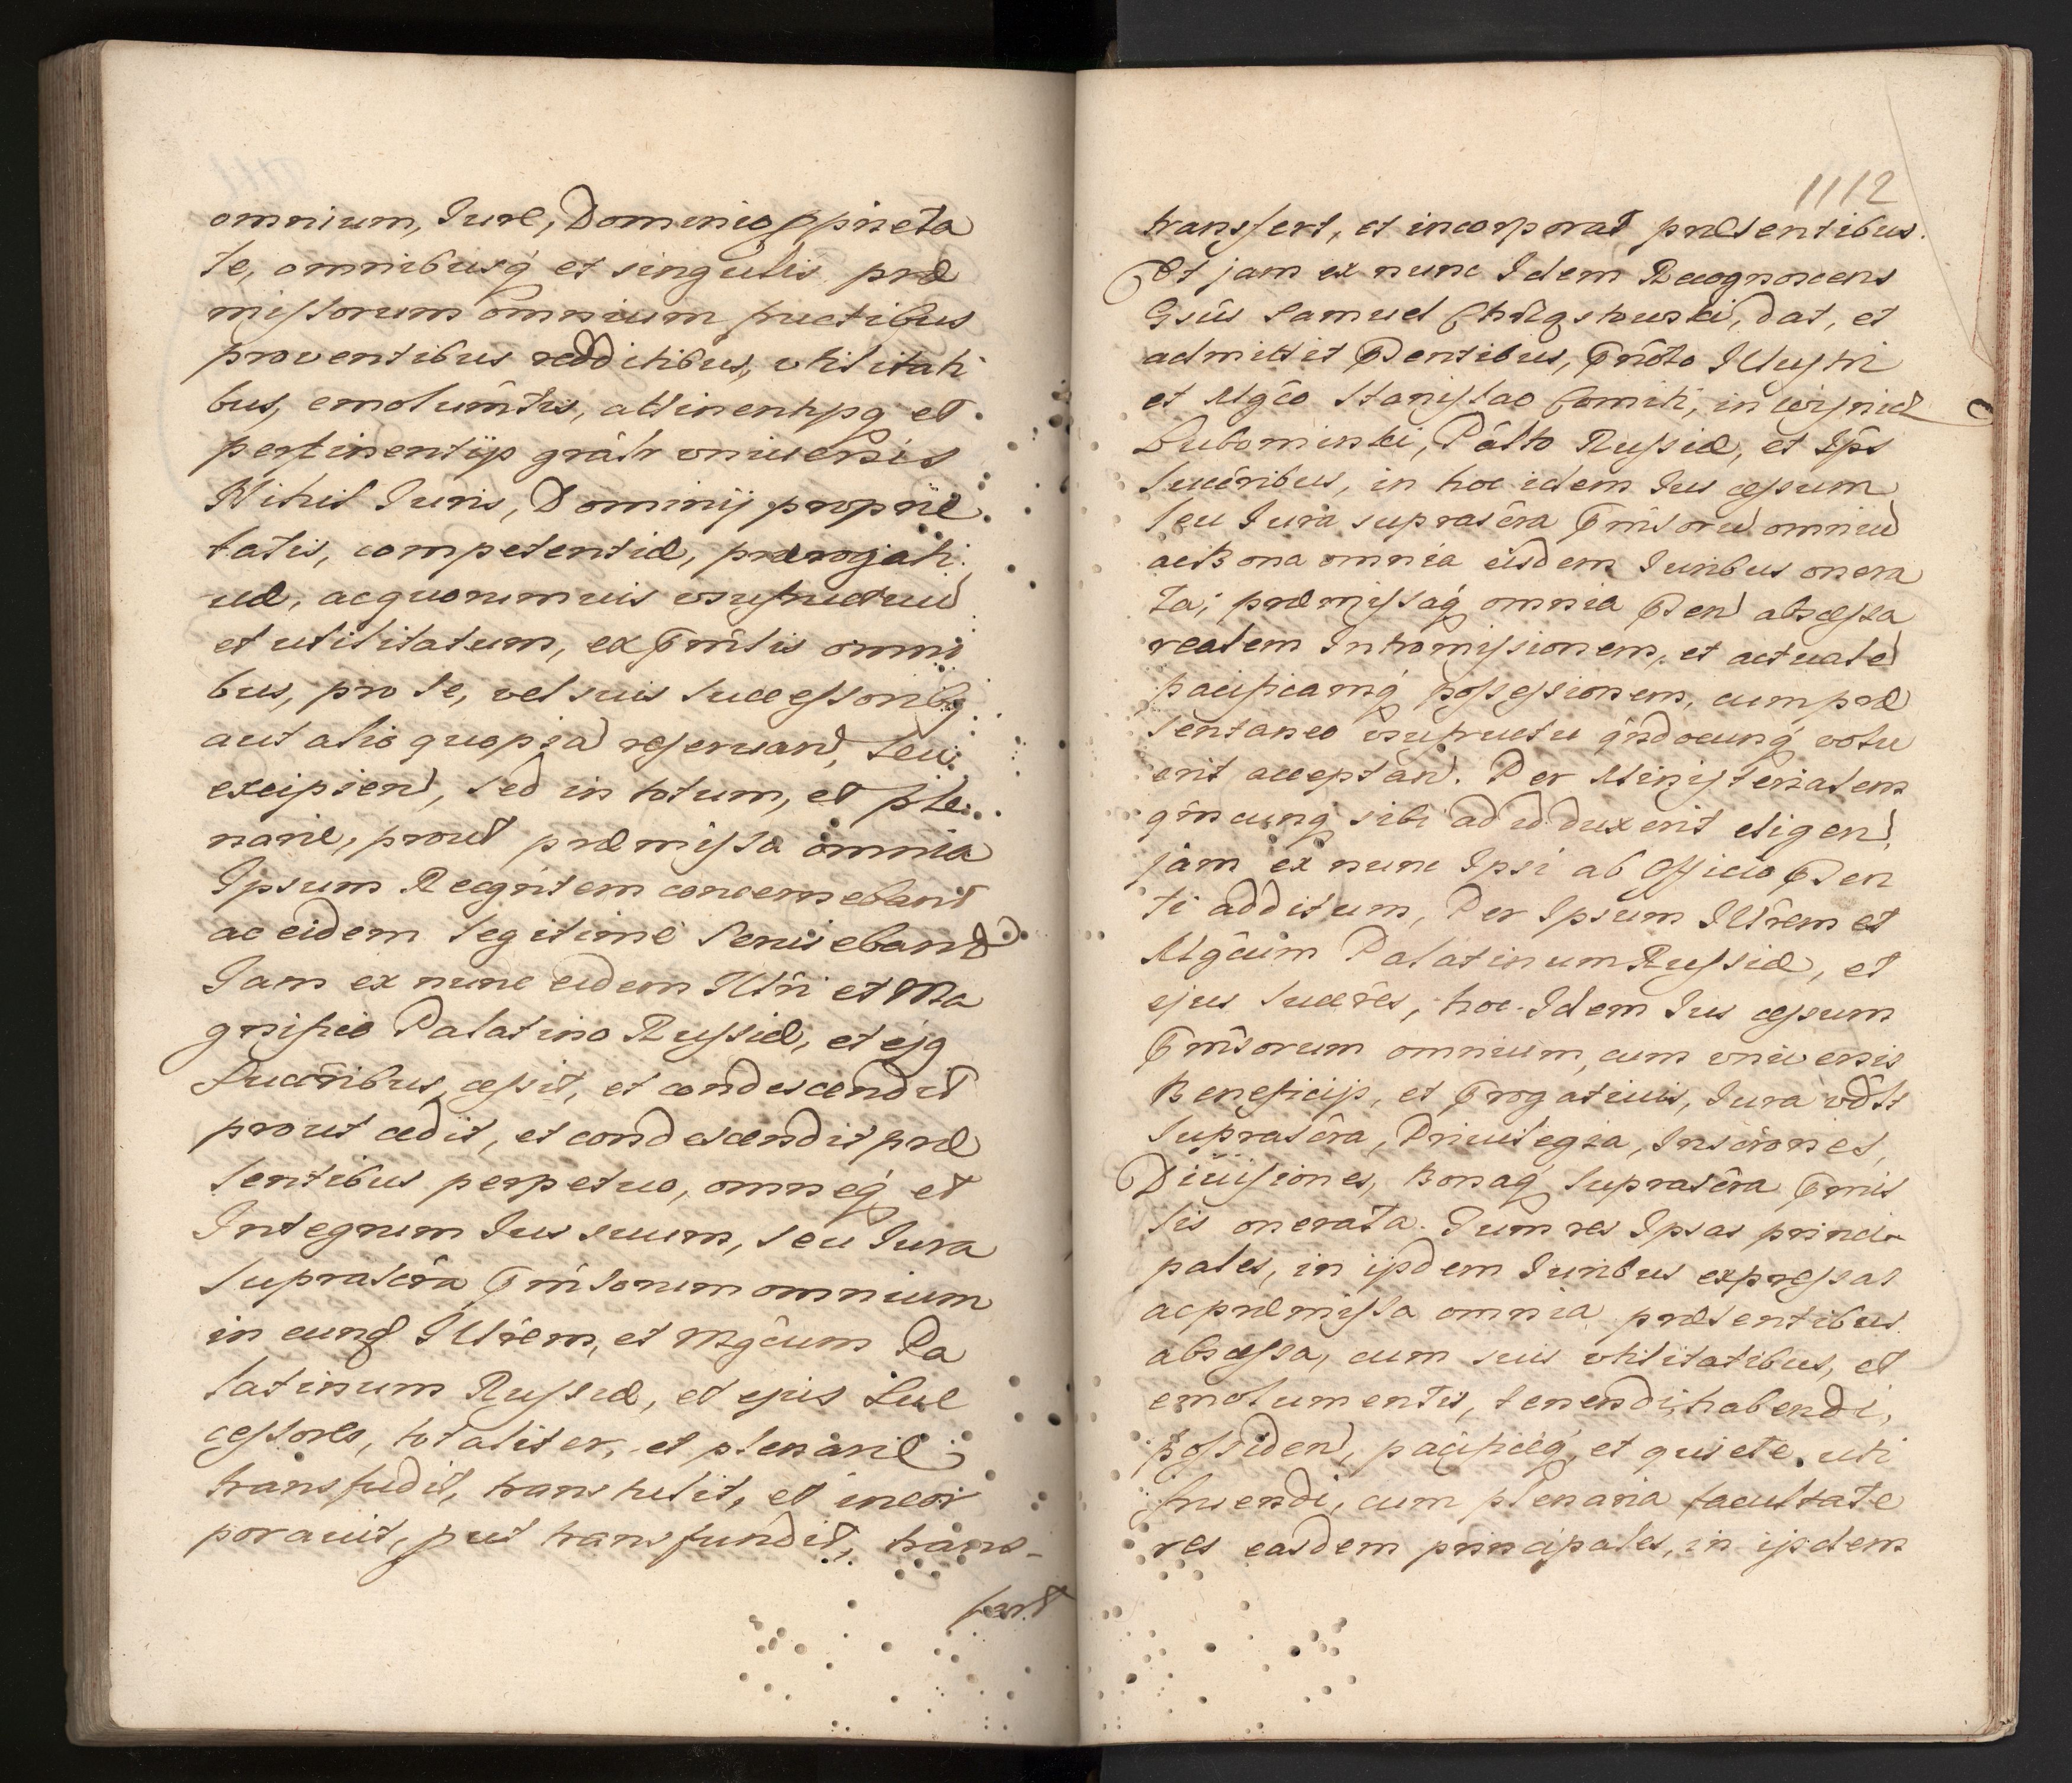 omnium, Jure, Dominio pprieta
te, omnibusq́ et singulis præ
missorum omnium fructibus
proventibus redditibus, vtilitati
bus, emolumtis, attinentijsq et
pertinentijs gratr vniuersis
Nihil Juris, Dominij proprie
tatis, competentiæ, prærogati
uæ, acquorumuis vsufructuu
et utilitatum, ex Pmissis omni
bus, pro se, vel suis successoribq
aut alio quopia reseruan, seu
excipien, sed in totum, et ple
narie, prout præmissa omnia
Ipsum Recgntem concernebant
ac eidem legitime seruiebant
Jam ex nunc eidem Illri et Ma
gnifico Palatino Russiæ, et ejq
Succribus, cessit, et condescendit
prout cedit, et condescendit præ
sentibus perpetuo, omneq́ et
Integrum Jus suum, seu Jura
suprascra Pmissorum omnium
in eund Illrem, et Mgcum Pa
latinum Russiæ, et ejus Suc
cessores, totaliter, et plenarie
transfudit, transtulit, et incor
porauit, put transfundit, trans-
fert
1112
transfert, et incorporat præsentibus.
Et jam ex nunc Idem Recognoscens
Gsus Samuel dat, et
admittit Pentibus, Pnoto Illustri
et Mgco Stanislao Comiti, in Wisnicz
Lubomirski, Palto Russiæ, et Ips
succribus, in hoc idem Jus cessum
seu Jura suprascra Pmissoru omniu
ac Bona omnia eisdem Juribus onera
ta; præmissaq́ omnia Pen abscessa
realem Intromissionem, et actuale
pacificamq́ possessionem, cum præ
sentaneo vsufructu qndocunq́ volu
erit acceptan. Per Ministerialem
qmcunq sibi ad id duxerit eligen,
jam ex nunc Ipsi ab Officio Psen
ti additum, Per Ipsum Illrem et
Mgcum Palatinum Russiæ, et
ejus succres, hoc Idem Jus cessum
Pmissorum omnium, cum vniuersis
Beneficijs, et Progatiuis, Jura vdlt
suprascra, Priuilegia, Inscrones,
Diuisiones, Bonaq́ suprascra Pmis
sis onerata. Tum res Ipsas princi-
pales, in ijsdem Juribus expressas
ac præmissa omnia præsentibus
abscessa, cum suis vtilitatibus, et
emolumentis, tenendi, habendi,
possiden, pacificeq́, et quiete uti
fruendi, cum plenaria facultate
res easdem principales, in ijsdem